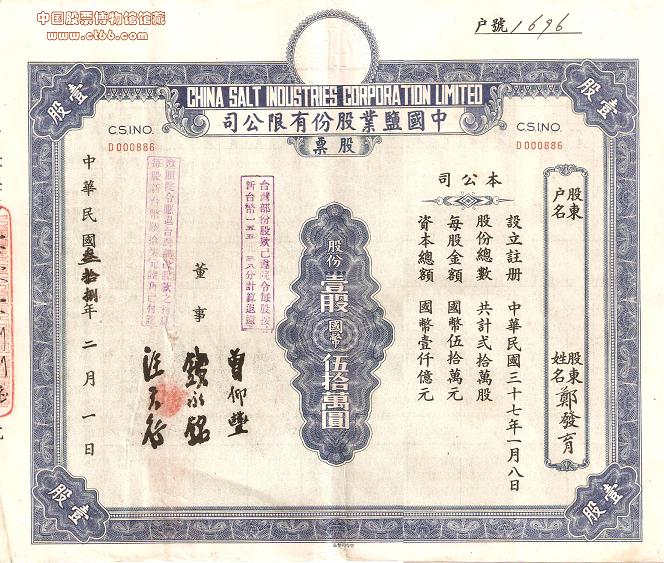 中国股票博物馆馆藏
www.cf66.com
戶號1696
CHINA SALT INDUSTRIES CORPORATION LIMITED
司公限有份股業鹽國中
票股
壹股
壹股
C.S.I.NO.
D000886
C.S.I.NO.
D000886
股東戶名
股東姓名 鄭發育
本公司
設立註册 中華民國三十七年一月八日
股份總數 共計貳拾萬股
每股金額 國幣伍拾萬元
資本總額 國幣壹仟億元
股份壹股國幣伍拾萬圓
台灣部份股款已遵院令每股按
新台幣一五五·三八分計算退還
董事
曾仰豐
錢永銘
中華民國叁拾捌年二月一日
壹股
壹股